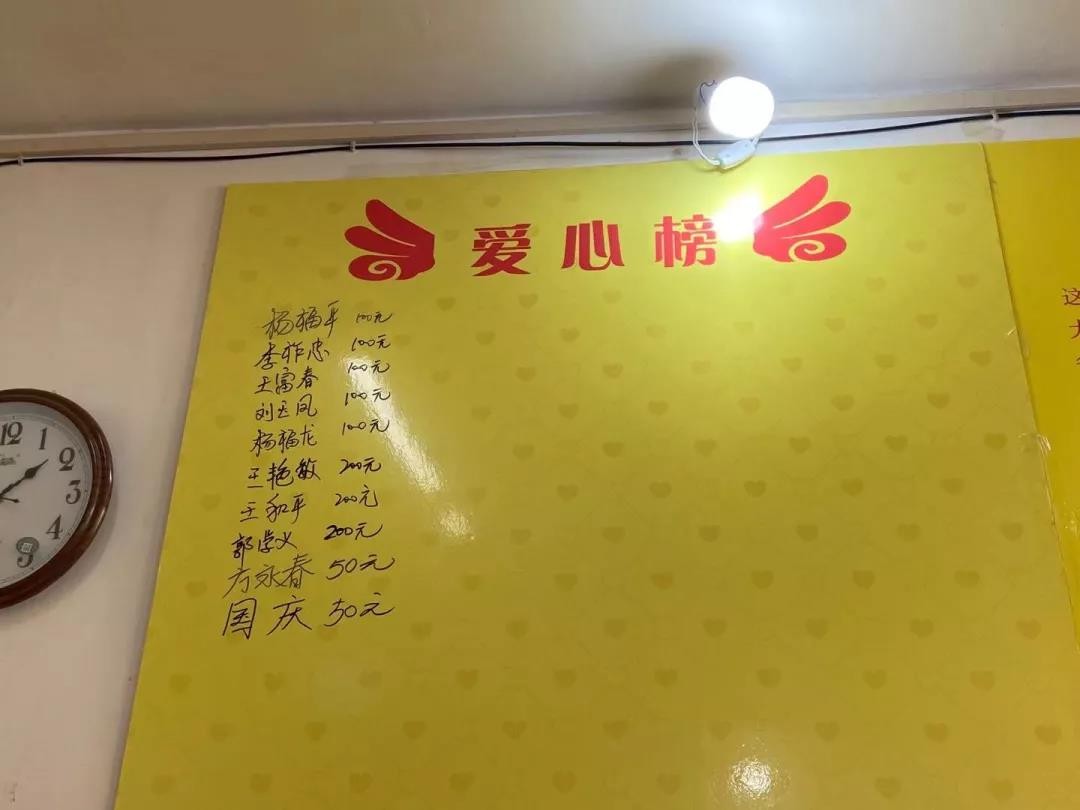 爱心榜
杨福平 100元
李祚忠 100元
王富春 100元
刘玉凤 100元
杨福龙 100元
王艳敏 200元
王和平 200元
郭学义 200元
方永春 50元
国庆 50元
12
1
2
3
4
5
这